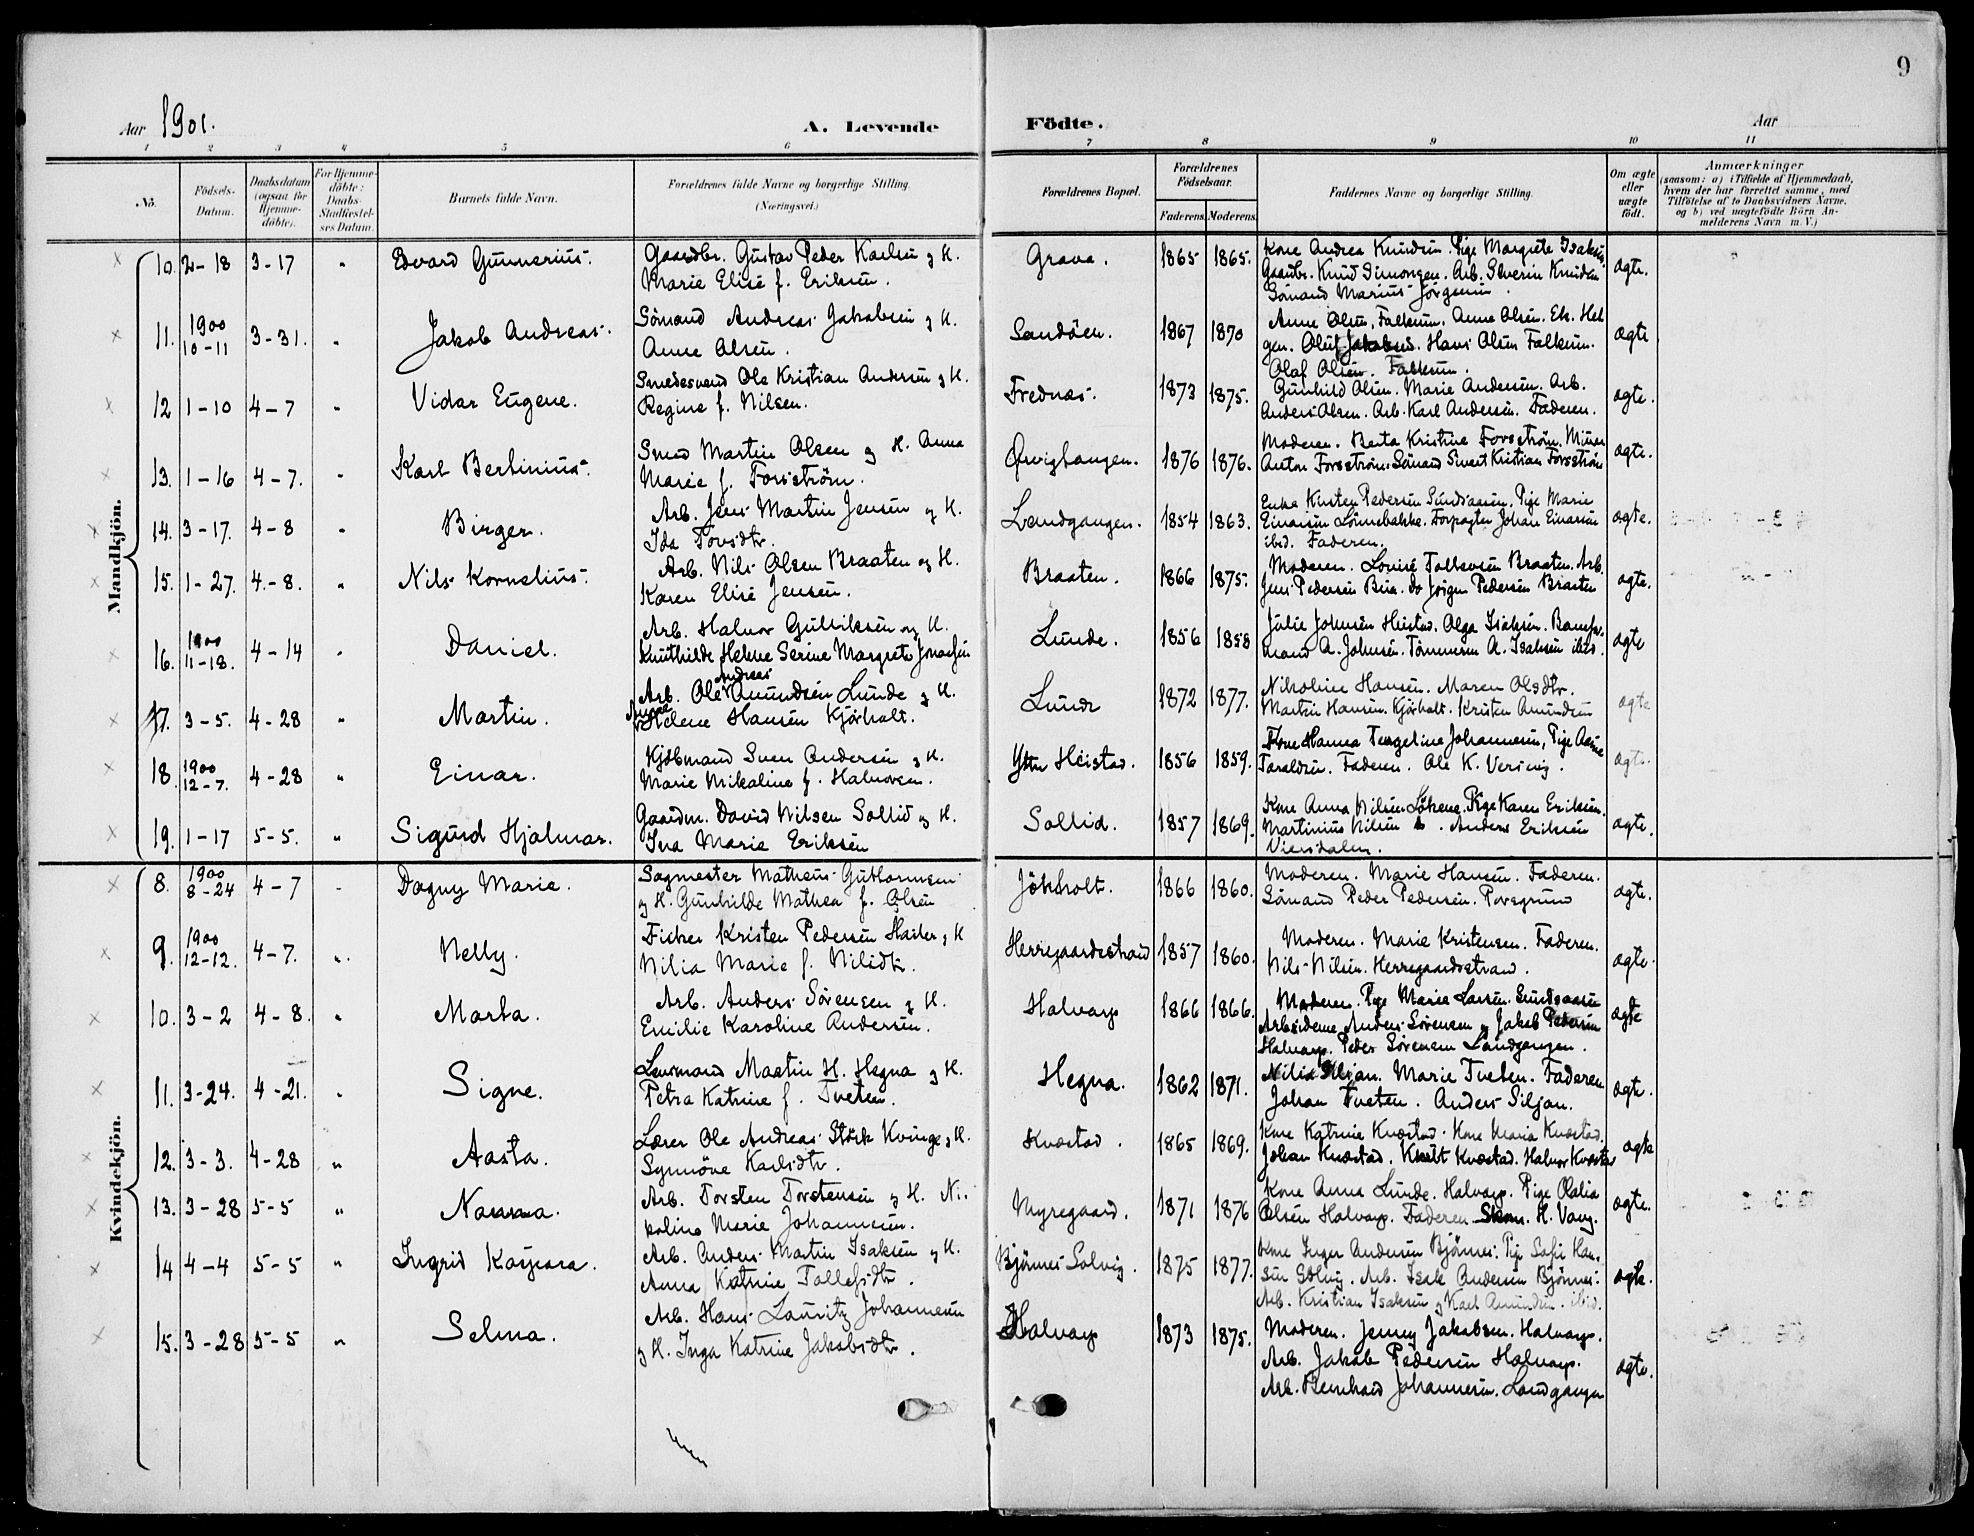 9
Aar 1901.
A. Levende Födte.
Aar
1 2 3 4 5 6 7 8 9 10 11
No.
Födsels-Datum.
Daabsdatum (ogsaa for Hjemme-döbte).
For Hjemme-döbte: Daabs-Stadfæstel-ses Datum.
Barnets fulde Navn.
Forældrenes fulde Navne og borgerlige Stilling. (Næringsvei.)
Forældrenes Bopæl.
Forældrenes Födselsaar.
Faderens. Moderens.
Faddernes Navne og borgerlige Stilling.
Om ægte eller uægte födt.
Anmærkninger
(saasom: a) i Tilfælde af Hjemmedaab,
hvem der har forrettet samme, med
Tilföielse af to Daabsvidners Navne,
og b) ved uægtefödte Börn An-
melderens Navn m. V.)
Mandkjön.
10. 2-18 3-17 " Edvard Gunnerius. Gaardbr. Gustav Peder Karlsen og H.
Marie Elise f. Eriksen. Grava. 1865 1865. Kone Andrea Knudsen. Pige Margrete Isaksen.
Gaardbr. Knud Simonsen. Arb. Severin Knudsen
Sömand Marius Jörgensen. ægte.
11. 1900 10-11 3-31. " Jakob Andreas. Sömand Andreas Jakobsen og H.
Anne Olsen. Sandöen. 1867 1870 Anne Olsen, Falkum. Anna Olsen. Els. Hel
gen. Oluf Jakobsen. Hans Olsen Falkum.
Olaf Olsen. Falkum. ægte
12 1-10 4-7 " Vidar Eugene. Smedesvend Ole Kristian Andersen og H.
Regine f. Nilsen. Frednæs. 1873 1875. Gunhild Olsen. Marie Andersen. Arb.
Anders Olsen. Arb. Karl Andersen. Faderen. ægte.
13. 1-16 4-7. " Karl Bertinius. Smed Martin Olsen og H. Anna
Marie f. Forsström. Ørvigtangen. 1876 1876. Moderen. Berta Kristine Forsström. Minør
Anton Forsström. Sömand Sivert Kristian Forsström ægte.
14. 3-17. 4-8 " Birger. Arb. Jens Martin Jensen og H.
Ida Torsdtr. Landgangen. 1854 1863. Enke Kirsten Pedersen Sundsaasen. Pige Marie
Einarsen Lönnebakke. Forpagter Johan Einarsen
ibid. Faderen. ægte.
15. 1-27. 4-8. " Nils Kornelius. Arb. Nils Olsen Braaten og H.
Karen Elise Jensen. Braaten. 1866 1875. Moderen. Lovise Tollevsen Braaten. Arb.
Jens Pedersen Bua. do Jörgen Pedersen Braaten ægte.
16. 1900 11-18. 4-14 " Daniel. Arb. Halvor Gulliksen og H.
Knuthilde Helene Serine Margrete Jonassen Lunde. 1856 1858 Julie Johnsen Heistad. Olga Isaksen. Baneför.
mand A. Johnsen. Tömmerm. A. Isaksen ibid. ægte
17. 3-5. 4-28 " Martin. Arb. Ole Andreas Amundsen Lunde og H.
Anne Helene Hansen Kjörholt. Lunde 1872 1877. Nikoline Hansen. Maren Olsdtr.
Martin Hansen. Kjörholt. Kristen Amundsen ægte
18. 1900 12-7. 4-28 " Einar. Kjöbmand Sven Andersen og H.
Marie Mikaline f. Halvorsen. Ytre Heistad. 1856 1859. Kone Hanna Tengeline Johannesen, Pige Aasne
Taraldsen. Faderen. Ole K. Versvig. ægte.
19. 1-17 5-5. " Sigurd Hjalmar. Gaardm. David Nilsen Sollid og H.
Ina Marie Eriksen Sollid. 1857 1869. Kone Anna Nilsen Lökene. Pige Karen Eriksen.
Martinius Nilsen. Anders Eriksen
Viersdalen. ægte.
Kvindekjön.
8. 1900 8-24 4-7 - Dagny Marie. Sagmester Mathæus Guthormsen
og H. Gunhilde Mathea f. Olsen Jönholt. 1866 1860. Moderen. Marie Hansen. Faderen.
Sömand Peder Pedersen. Porsgrund ægte.
9. 1900 12-12. 4-7. " Nelly. Fisker Kristen Pedersen og H
Nilia Marie f. Nilsdtr. Herregaardsstrand 1857 1860. Moderen. Marie Kristensen. Faderen.
Nils Nilsen. Herregaardsstrand. ægte.
10. 3-2 4-8. " Marta. Arb. Anders Sörensen og H.
Emilie Karoline Andersen. Halvarp 1866 1866. Moderen. Pige Maria Larsen. Sundsaasen
Arbeiderne Anders Sörensen og Jakob Pedersen
Halvarp. Peder Sörensen Landgangen. ægte
11. 3-24. 4-21. " Signe. Lensmand Martin H. Hegna og H.
Petra Katrine f. Tveten. Hegna. 1862 1871. Nilia Siljan. Marie Tveten. Faderen
Johan Tveten. Anders Siljan. ægte.
12. 3-3. 4-28 " Aasta. Lærer Ole Andreas Stöck Kvinge og H.
Synnöve Karlsdtr. Kvæstad. 1865 1869. Kone Katrine Kvæstad. Kone Maria Kvæstad.
Johan Kvæstad. Knut Kvæstad. Halvor Kvæstad ægte
13. 3-28 5-5 " Nanna. Arb. Torsten Torstensen og H. Ni-
koline Marie Johannesen. Myregaard. 1871 1876 Kone Anna Lunde. Halvarp. Pige Olalia
Olsen Halvarp. Faderen. Skom. H. Vang. ægte.
14 4-4 5-5 " Ingrid Kaspara. Arb. Anders Martin Isaksen og H.
Anna Katrine Tollefsdtr. Bjönnes Solvig. 1875 1877. Kone Inger Andersen Bjönnes. Pige Sofie Han-
sen Solvig. Arb. Isak Andersen Bjönnes.
Arb. Kristian Isaksen og Karl Amundsen. ibid. ægte.
15. 3-28 5-5 " Selma. Arb. Hans Lauritz Johannesen
og H. Inga Katrine Jakobsdtr. Halvarp 1873 1875. Moderen. Jenny Jakobsen. Halvarp.
Arb. Jakob Pedersen Halvarp.
Arb. Bernhard Johannesen. Landgangen ægte.